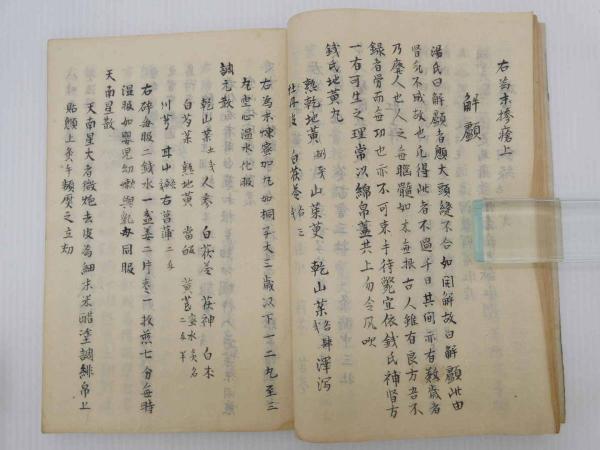 右為末摻瘡上
解顱
湯氏曰解顱者顱大頭縫不合如開解故曰解顱此由
腎氣不成故也凡得此者不過千日其間亦有數歲者
乃廢人也人之每腦髓如木每根古人雖有良方吾不
錄者勞而每功也亦不可束手待斃宜依錢氏補腎方
一有可生之理常以綿帛蓋其上勿令風吹
錢氏地黃丸
熟乾地黃 山茱萸 乾山葉 澤瀉
牡丹皮 白茯苓
右為末煉蜜加丸如桐子大三歲以下一二丸至三
丸空心溫水化服
調元散
乾山葉 人參 白茯苓 茯神 白朮
白芍葉 熟地黃 當歸 黃芪蜜水炙名二五半
川芎 甘山 石菖蒲二五
右碎每服二錢水一盞姜二片枣一枚煎七分每時
溫服如嬰兒幼嫩與乳母同服
天南星散
天南星大者微炮去皮為細末米醋塗調緋帛上
貼顱上炙手頻熨之立効